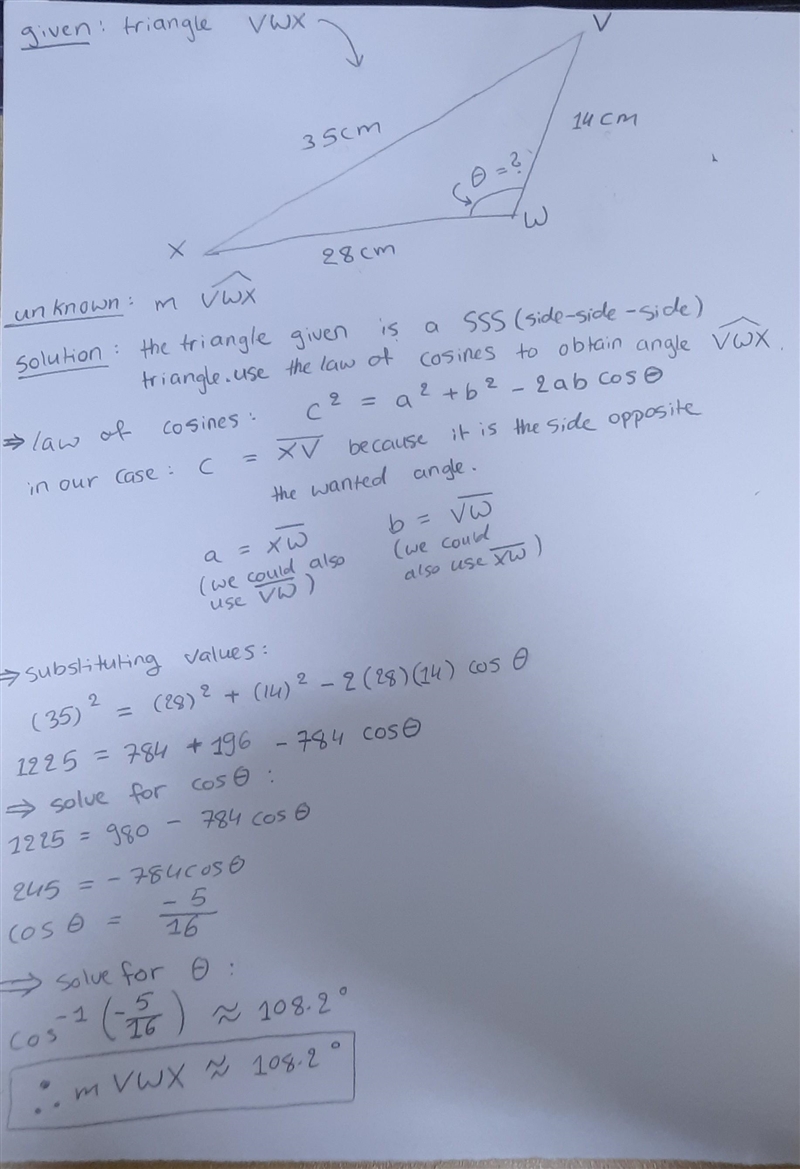 given: triangle VWX
V
35cm
14cm
θ = ?
X
W
28cm
unknown: m V̂ŴX̂
solution: the triangle given is a SSS (side-side-side)
triangle. use the law of cosines to obtain angle V̂ŴX̂.
⇒ law of cosines: c² = a² + b² - 2ab cosθ
in our case: c = X̅V̅ because it is the side opposite
the wanted angle.
a = X̅W̅ b = V̅W̅
(we could also (we could
use V̅W̅) also use X̅W̅)
⇒ substituting values:
(35)² = (28)² + (14)² - 2(28)(14) cosθ
1225 = 784 + 196 - 784 cosθ
⇒ solve for cosθ:
1225 = 980 - 784 cosθ
245 = -784cosθ
cosθ = -5/16
⇒ solve for θ:
cos⁻¹(-5/16) ≈ 108.2°
∴ m VWX ≈ 108.2°